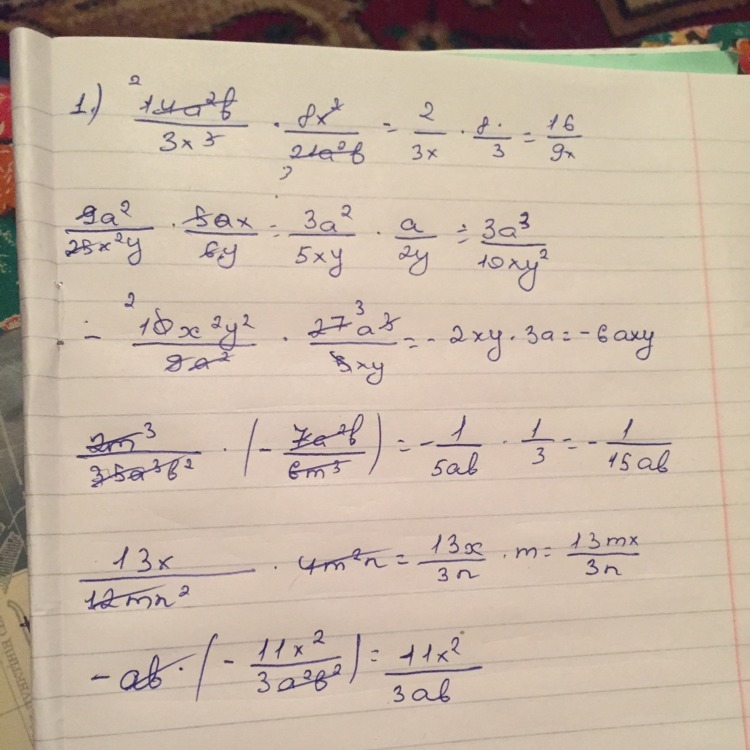 1.) 2 14a²b/3x³ · 8x²/21a²b 3 = 2/3x · 8/3 = 16/9x
9a²/25x²y · 5ax/6y = 3a²/5xy · a/2y = 3a³/10xy²
- 2 10x²y²/9a² · 27 3 a³/5xy = - 2xy · 3a = -6axy
2m³/35a³b² · (- 7a²b/6m³) = - 1/5ab · 1/3 = - 1/15ab
13x/12mn² · 4m²n = 13x/3n · m = 13mx/3n
- ab · (- 11x²/3a²b²) = 11x²/3ab